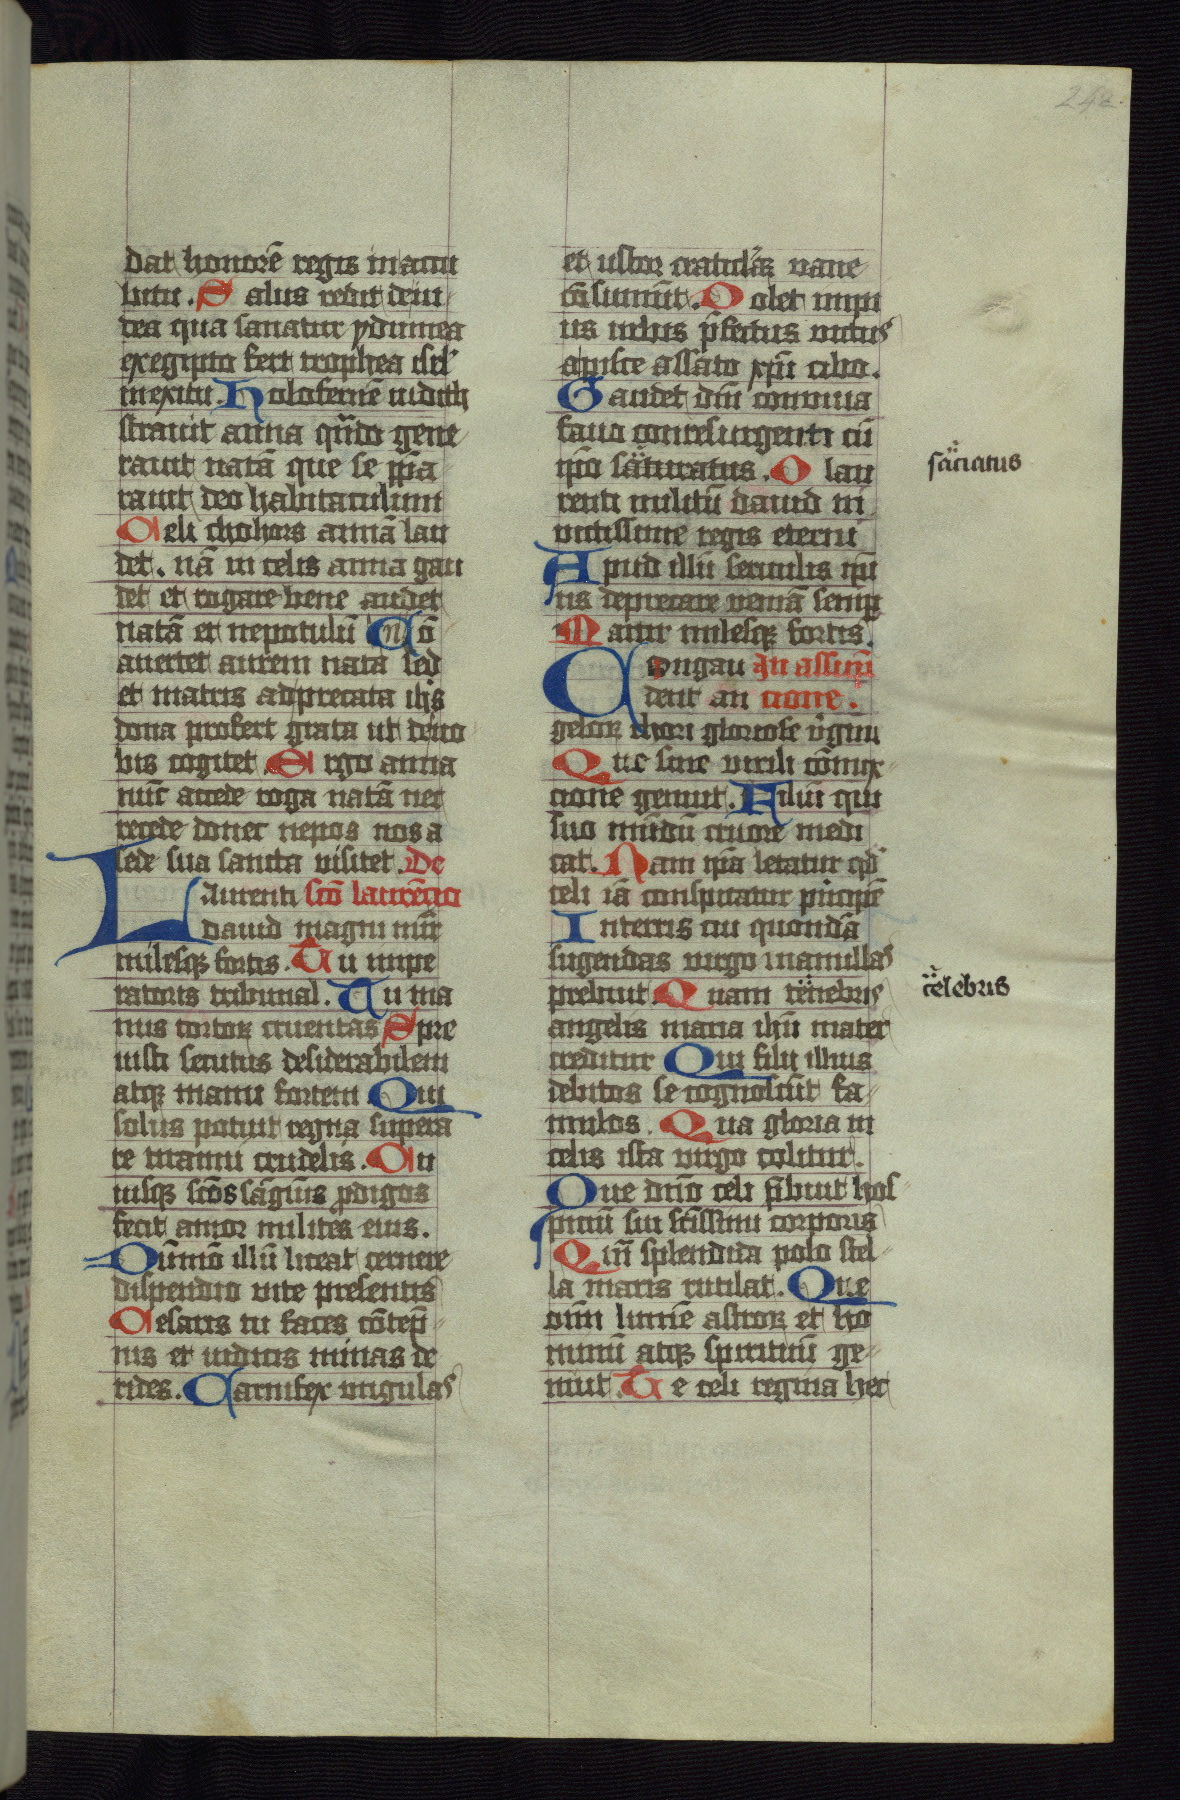 248
dat honorē regis in actu
butu. Salus redit deui
cea qua sanatur ydumea
ex egipto fert trophea isrl'
in exitu. Holofernē iudith
strauit anna qn̄do gene
rauit natā que se p̄pa
rauit deo habitaculum
Celi chohors annā lau
det. nā in celis anna gau
det et rogare bene audet
natā et nepotulū Nō
auertet aurem nata sed
et matris ad precata ihs
dona profert grata ut de no
bis cogitet. Ergo anna
nūc accede roga natā nec
recede donec nepos nos a
sede sua sancta uisitet. De
Laurenti sc̄o laurēcio
dauid magni mr̄
milesqȝ fortis. Tu impe
ratoris tribunal. Tu ma
nus tortoꝝ cruentas Spre
uisti secutus desiderabilem
atqȝ manu fortem Qui
solus potuit regna supera
re tiranni crudelis. Cu
iusqȝ sc̄os sāguis ꝓdigos
fecit amor milites eius.
Dūmo illū liceat cernere
dispendio uite presentis
Cesaris tu fasces cōtep̄
nis et iudicis minas de
rides. Carnifex ungulas
et ustor craticulaꝫ uane
cōsumūt. Dolet impi
us urbis p̄fectus uictus
a pisce assato xp̄i cibo.
Gaudet dn̄i conuiua
fauo conresurgenti cū
ip̄o sāturatus. O lau
renti militū dauid in
uictissime regis eterni
Apud illū seruulis ip̄i
us deprecare ueniā semꝑ
Martir milesqȝ fortis.
Congau In assum̄
dent an cione.
geloꝝ chori gloriose v̄gini
Que sine uirili cōmix
cione genuit. Filiū qui
suo mūdū cruore medi
cat. Nam ip̄a letatur qd̄
celi iā conspicatur principē
In terris cui quondā
sugendas uirgo mamillas
prebuit Quam tēnebris
angelis maria ihū mater
creditur Qui filij illius
debitos se cognoscūt fa
mulos. Qua gloria in
celis ista uirgo colitur.
Que dn̄o celi p̄buit hos
picium sui sc̄issimi corporis
Q̄m splendida polo stel
la maris rutilat. Que
om̄i lumē astroꝝ et ho
minū atqȝ spirituū ge
nuit. Te celi regina hec
sāciatus
c̄elebris